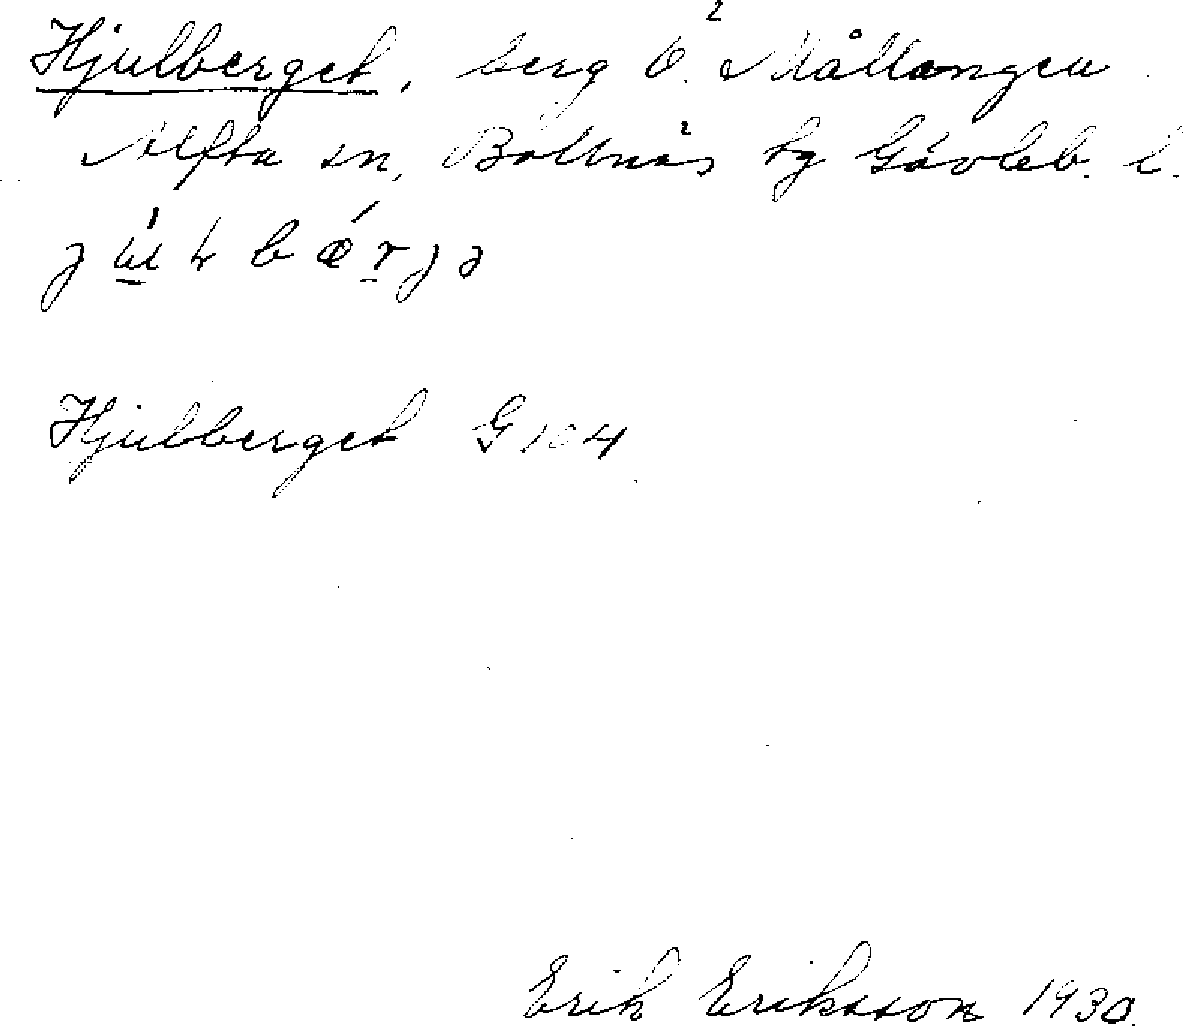 Hjulberget, berg Ö. Mållangen
Alfta sn, Bollnäs tg Gävleb. l.
Hjulberget G 104
Erik Eriksson 1930.